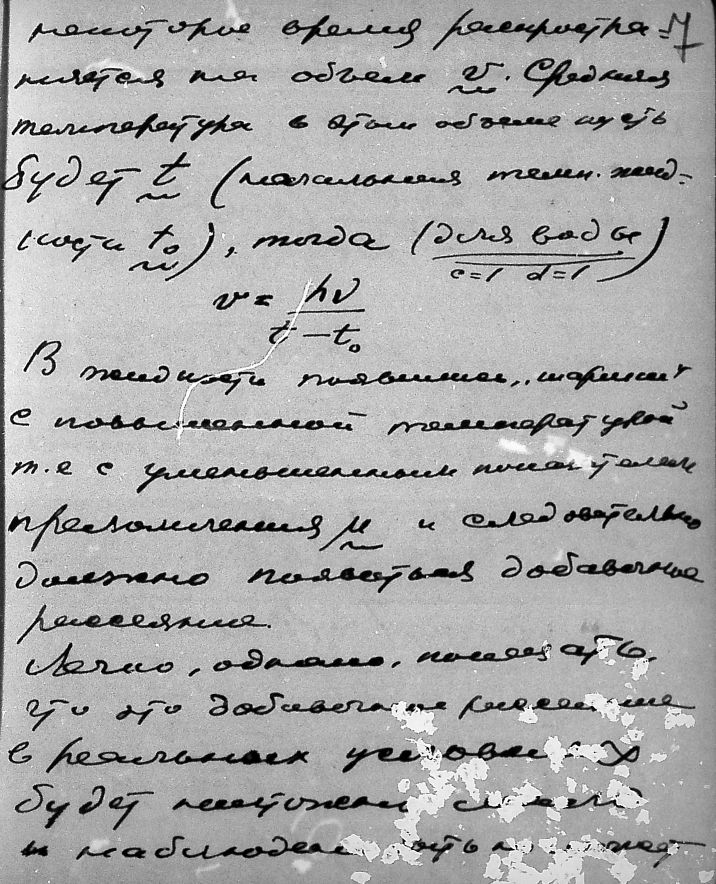 некоторое время распростра= 7
няется на объем v. Средняя
температура в этом объеме пусть
будет t (начальная темп. жид=
кости t₀), тогда (для воды)
c=1 d=1
v = hν / t – t₀
В жидкости появились „шарики“
с повышенной температурой
т.е с уменьшенным показателем
преломления μ и следовательно
должно появиться добавочное
рассеяние.
Легко, однако, показать,
что это добавочное рассеяние
в реальных условиях
будет ничтожно мало
и наблюдено быть не может